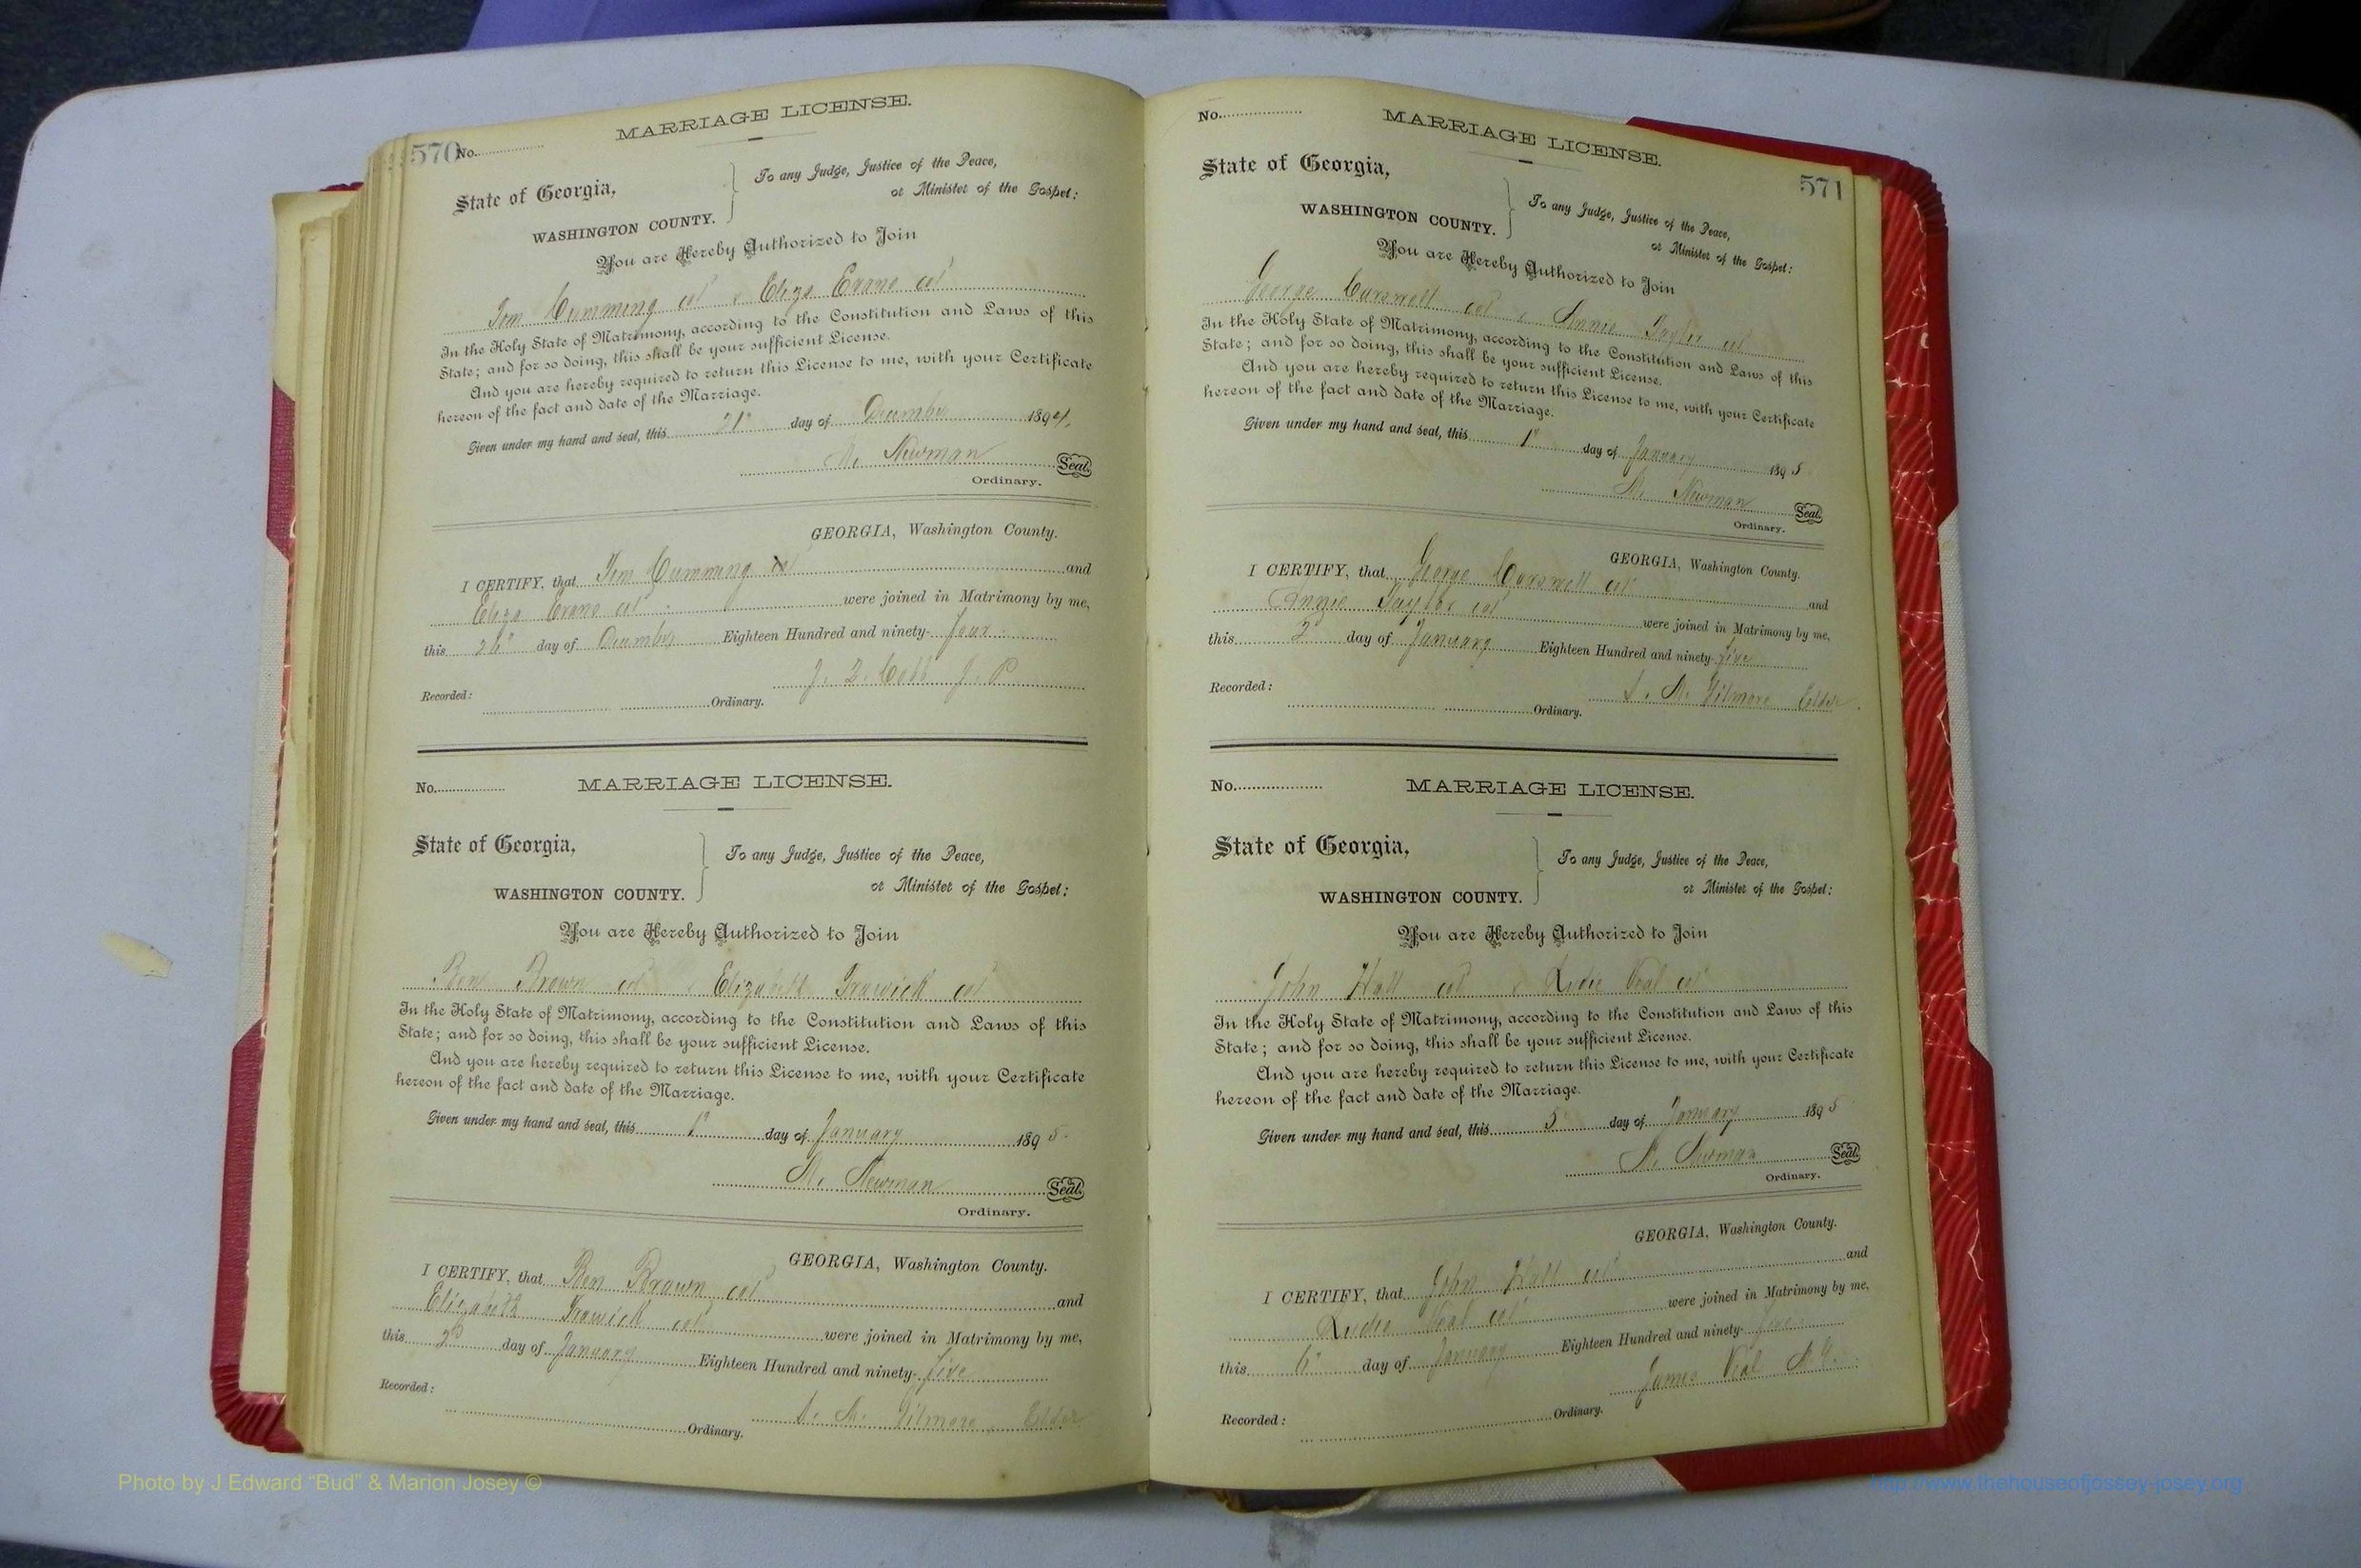 570
No.
MARRIAGE LICENSE.
State of Georgia,
WASHINGTON COUNTY.
To any Judge, Justice of the Peace,
or Minister of the Gospel:
You are Hereby Authorized to Join
Tom Cumming col & Eliza Evans col
In the Holy State of Matrimony, according to the Constitution and Laws of this
State; and for so doing, this shall be your sufficient License.
And you are hereby required to return this License to me, with your Certificate
hereon of the fact and date of the Marriage.
Given under my hand and seal, this 21" day of December 1894.
M. Newman Seal.
Ordinary.
GEORGIA, Washington County.
I CERTIFY, that Tom Cumming col and
Eliza Evans col were joined in Matrimony by me,
this 26" day of December Eighteen Hundred and ninety-four
J. P.
Recorded: Ordinary.
No. MARRIAGE LICENSE.
State of Georgia,
WASHINGTON COUNTY.
To any Judge, Justice of the Peace,
or Minister of the Gospel:
You are Hereby Authorized to Join
Ben Brown col & Elizabeth Trawick col
In the Holy State of Matrimony, according to the Constitution and Laws of this
State; and for so doing, this shall be your sufficient License.
And you are hereby required to return this License to me, with your Certificate
hereon of the fact and date of the Marriage.
Given under my hand and seal, this 1" day of January 1895
M. Newman Seal.
Ordinary.
GEORGIA, Washington County.
I CERTIFY, that Ben Brown col and
Elizabeth Trawick col were joined in Matrimony by me,
this day of January Eighteen Hundred and ninety-five
Gilmore, Elder
Recorded: Ordinary.
No.
MARRIAGE LICENSE.
571
State of Georgia,
WASHINGTON COUNTY.
To any Judge, Justice of the Peace,
or Minister of the Gospel:
You are Hereby Authorized to Join
George Carswell col & Annie Taylor col
In the Holy State of Matrimony, according to the Constitution and Laws of this
State; and for so doing, this shall be your sufficient License.
And you are hereby required to return this License to me, with your Certificate
hereon of the fact and date of the Marriage.
Given under my hand and seal, this 1" day of January 1895
M. Newman Seal.
Ordinary.
GEORGIA, Washington County.
I CERTIFY, that George Carswell col and
Annie Taylor col were joined in Matrimony by me,
this day of January Eighteen Hundred and ninety-five
Gilmore Elder
Recorded: Ordinary.
No. MARRIAGE LICENSE.
State of Georgia,
WASHINGTON COUNTY.
To any Judge, Justice of the Peace,
or Minister of the Gospel:
You are Hereby Authorized to Join
John Hall col & Veal col
In the Holy State of Matrimony, according to the Constitution and Laws of this
State; and for so doing, this shall be your sufficient License.
And you are hereby required to return this License to me, with your Certificate
hereon of the fact and date of the Marriage.
Given under my hand and seal, this 5 day of January 1895
M. Newman Seal.
Ordinary.
GEORGIA, Washington County.
I CERTIFY, that John Hall col and
Veal col were joined in Matrimony by me,
this 6" day of January Eighteen Hundred and ninety-five
James Veal M.G.
Recorded: Ordinary.
Photo by J Edward “Bud” & Marion Josey ©
http://www.thehouseofjossey-josey.org